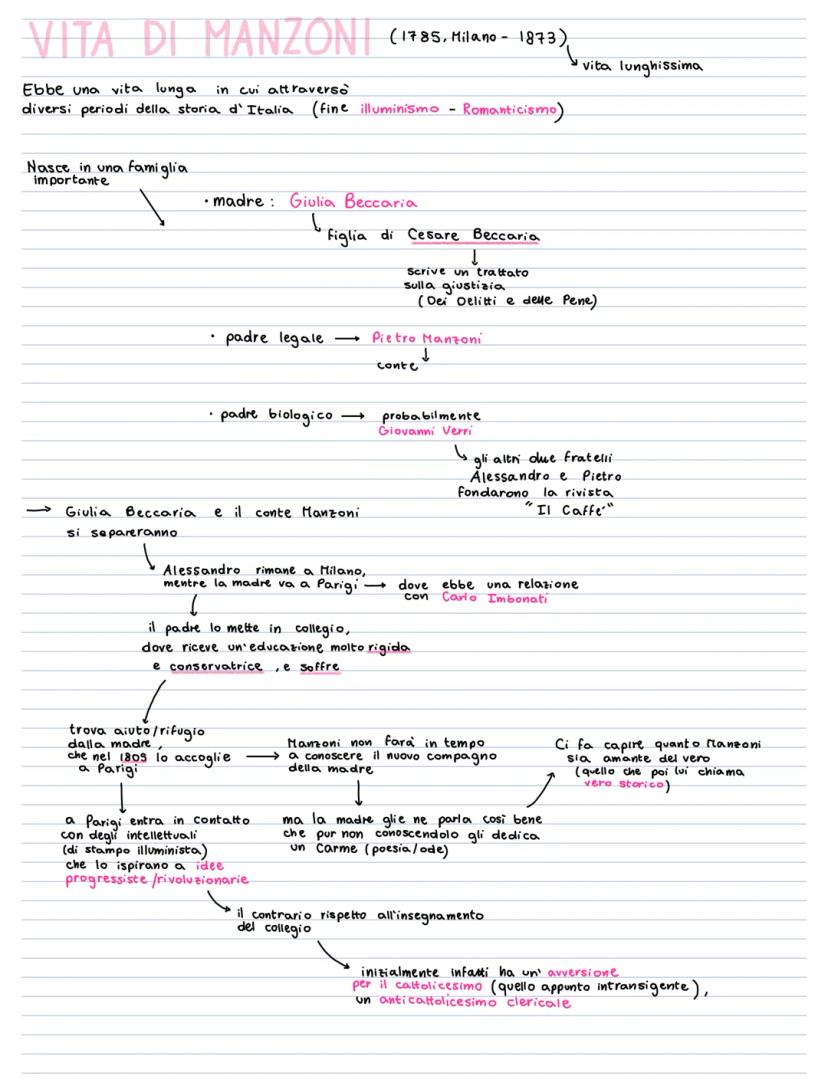 VITA DI MANZONI (1785, Milano - 1873)
vita lunghissima
Ebbe una vita lunga in cui attraversò
diversi periodi della storia d'Italia (fine illuminismo - Romanticismo)
Nasce in una famiglia
importante
• madre: Giulia Beccaria
figlia di Cesare Beccaria
scrive un trattato
sulla giustizia
(Dei Delitti e delle Pene)
• padre legale → Pietro Manzoni
conte
• padre biologico → probabilmente
Giovanni Verri
gli altri due fratelli
Alessandro e Pietro
fondarono la rivista
"Il Caffè"
→ Giulia Beccaria e il conte Manzoni
si separeranno
Alessandro rimane a Milano,
mentre la madre va a Parigi → dove ebbe una relazione
con Carlo Imbonati
il padre lo mette in collegio,
dove riceve un'educazione molto rigida
e conservatrice, e soffre
trova aiuto/rifugio
dalla madre,
che nel 1805 lo accoglie
a Parigi
→ Manzoni non farà in tempo
a conoscere il nuovo compagno
della madre
Ci fa capire quanto Manzoni
sia amante del vero
(quello che poi lui chiama
vero storico)
a Parigi entra in contatto
con degli intellettuali
(di stampo illuminista)
che lo ispirano a idee
progressiste/rivoluzionarie
ma la madre glie ne parla così bene
che pur non conoscendolo gli dedica
un Carme (poesia/ode)
il contrario rispetto all'insegnamento
del collegio
inizialmente infatti ha un' avversione
per il cattolicesimo (quello appunto intransigente),
un anticattolicesimo clericale